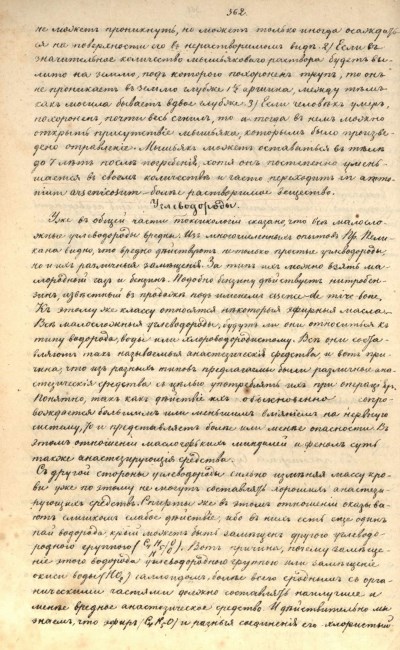 362.
не можетъ проникнуть, но можетъ только иногда осаждать
ся на поверхности его въ нерастворимомъ видѣ. 2) Если въ
значительное количество мышьяковаго раствора будетъ вы
лито на землю, подъ которою похороненъ трупъ, то онъ
не проникаетъ въ землю глубже 1½ аршина, между тѣмъ
какъ могила бываетъ вдвое глубже 3) Если человѣкъ умеръ,
похороненъ, почти весь сгнилъ, то и тогда въ немъ можно
открыть присутствіе мышьяка, которымъ было произве
дено отравленіе. Мышьякъ можетъ оставаться въ тѣлѣ
до 7 лѣтъ послѣ погребенія, хотя онъ постепенно умень
шается въ своемъ количествѣ и часто переходитъ въ
болѣе растворимое вещество.
Углеводороды.
Уже въ общей части токсикологіи сказано, что всѣ малосло
жные углеводороды вредны. Изъ многочисленныхъ опытовъ Пр. Пели
кана видно, что вредно дѣйствуютъ не только простые углеводороды,
но и ихъ различныя замѣщенія. За типъ ихъ можно взять
газъ и бензинъ. Подобно бензину дѣйствуетъ нитробен
зинъ, извѣстный въ продажѣ подъ именемъ
Къ этому же классу относятся нѣкоторыя эфирныя масла.
Всѣ малосложныя углеводороды, будутъ ли они относиться къ
типу водорода, воды или хлороводородистому. Всѣ они состав
ляютъ такъ называемыя анастезическія средства, и вотъ при
чина, что изъ разныхъ типовъ предлагаемы были различныя ана
стезическія средства съ цѣлью употреблять ихъ при операціяхъ.
Понятно, такъ какъ дѣйствіе ихъ обыкновенно сопро
вождается большимъ или меньшимъ вліяніемъ на нервную
систему, то и представляетъ болѣе или менѣе опасности. Въ
этомъ отношеніи масло горькихъ миндалей и фенолъ суть
также анастезирующія средства.
Съ другой стороны углеводороды сильно измѣняя массу кро
ви уже по этому не могутъ составлять хорошихъ анастези
рующихъ средствъ. Спирты же въ этомъ отношеніи оказыва
ютъ слишкомъ слабое дѣйствіе, ибо въ нихъ есть еще одинъ
пай водорода, который можетъ быть замѣщенъ другою углеводо
родною группою Вотъ причина, почему замѣще
ніе этого водорода углеводородною группою или замѣщеніе
окиси воды галлоидомъ, болѣе всего сроднымъ съ орга
ническими частями должно составлять наилучшее и
менѣе вредное анастезическое средство. И дѣйствительно мы
знаемъ, что эфиръ и разныя соединенія его хлористый